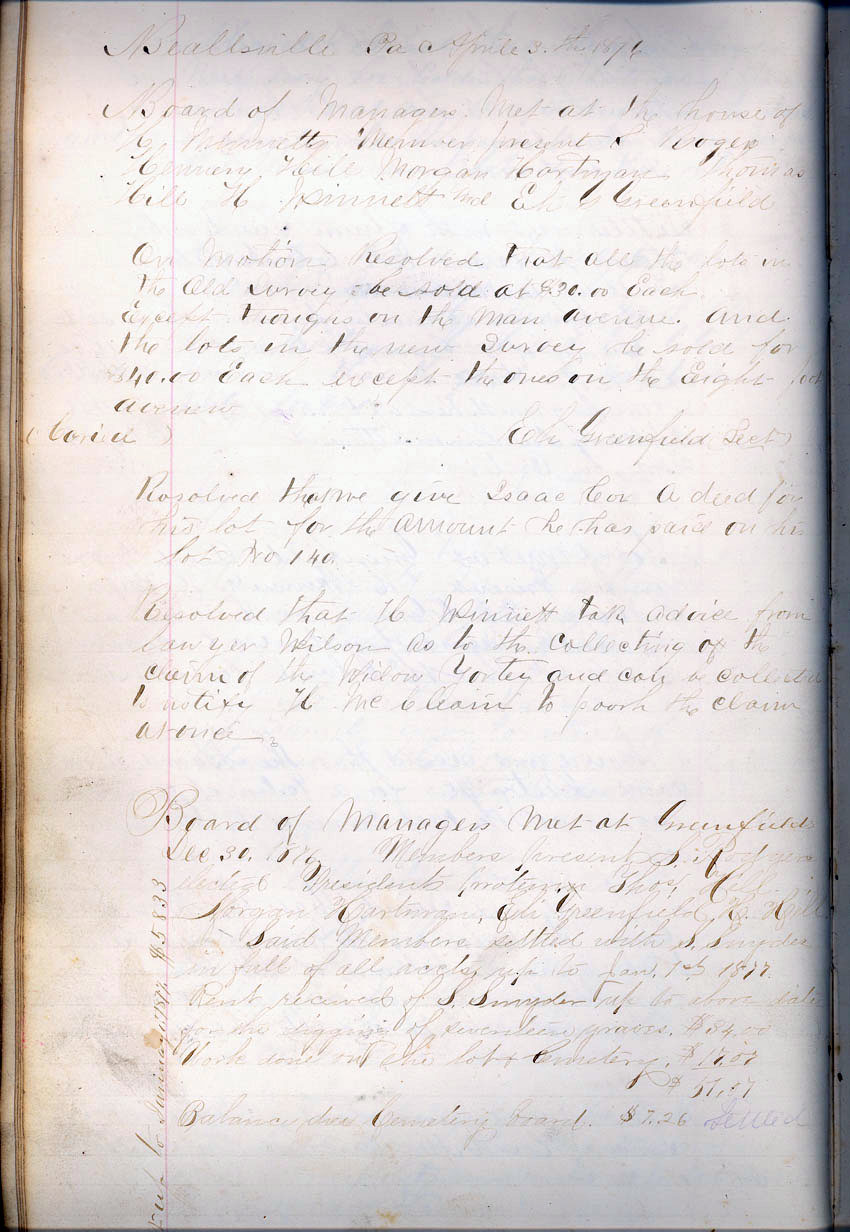 Beallsville Pa Aprile 3.th 1876
Board of Managers. Met at the house of
H. Winnetts Member present S Roger
Hennery Hill Morgan Hartman Thomas
Hill H Winnett and Eli Greenfield
On Motion Resolved that all the lots in
the Old Survey be sold at $30.00 Each
Except on the Man avenue. And
the lots in the new Survey be sold for
$40.00 Each except the ones on the Eight foot
avenew
(Caried) Eli Greenfield Sect
Resolved that we give Isaac Cox A deed for
his lot for the Amount he has paid on his
lot No 140.
Resolved that H Winnett take advice from
lawyer Wilson as to the collecting of the
claim of the Widow and can be collected
to notify H McCleain to the claim
at once
Board of Managers met at Greenfields
Dec. 30. 1876 Members present S. Rodgers
elected President protem Thos. Hill
Morgan Hartman, Eli Greenfield, H. Hill
Said Members settled with S. Smyder
in full of all accts. up to Jan. 1st 1877
Rent received of S. Smyder up to above date
for the digging of seventeen graves. $34.00
Work done on the lot & Cemetery.
Balance due Cemetery board. $7.26 Settled
$58.33